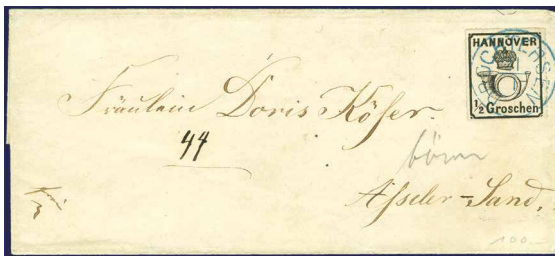 HANNOVER
½ Groschen
Fräulein Doris Köser.
44
Asseler-Sand.
100.-